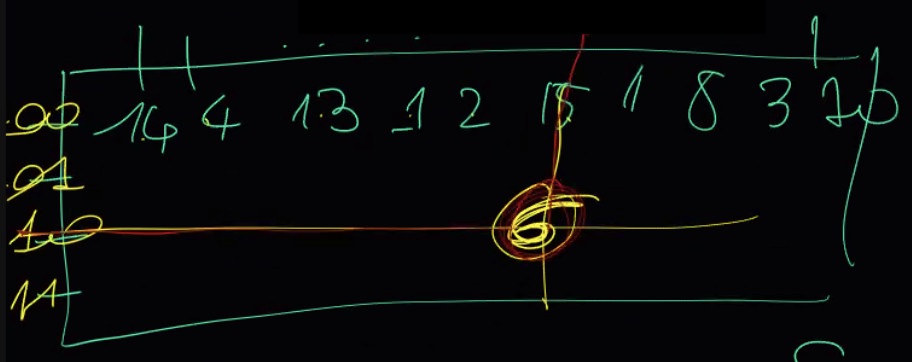 00 14 4 13 1 2 15 1 8 3 10
01
10 6
11